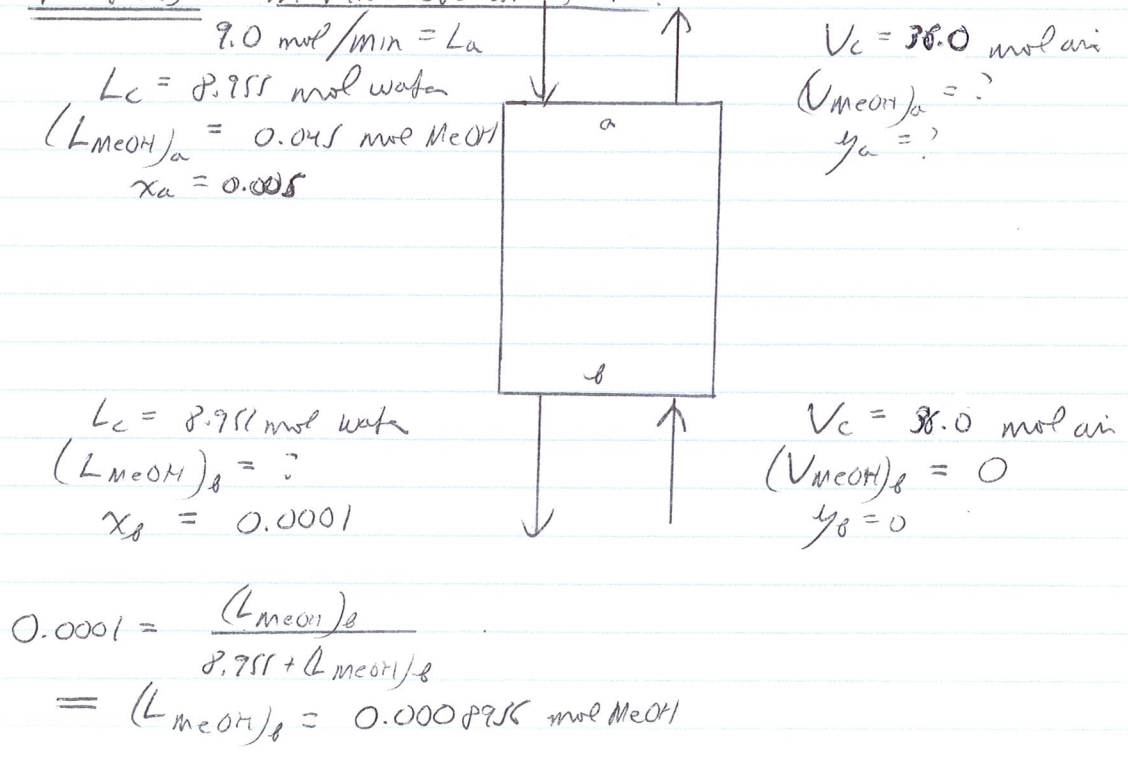 9.0 mol/min = La
Lc = 8.955 mol water
(LMeOH)a = 0.045 mol MeOH
xa = 0.005
a
Vc = 36.0 mol air
(VMeOH)a = ?
ya = ?
b
Lc = 8.955 mol water
(LMeOH)b = ?
xb = 0.0001
Vc = 36.0 mol air
(VMeOH)b = 0
yb = 0
0.0001 = (LMeOH)b
8.955 + (LMeOH)b
= (LMeOH)b = 0.0008956 mol MeOH